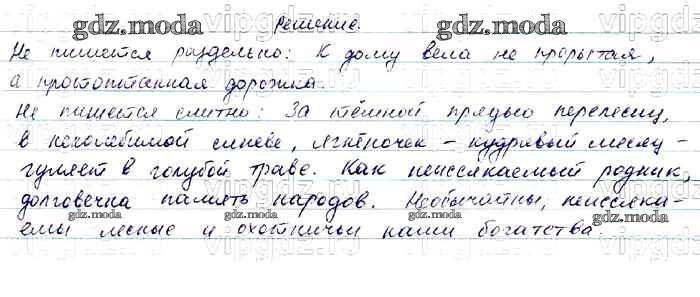 Решение.
Не пишется раздельно: К дому вела не прорытая,
а протоптанная дорожка.
Не пишется слитно: За тёмной прядью перелесиц,
в неколебимой синеве, ягнёночек - кудрявый месяц -
гуляет в голубой траве. Как неиссякаемый родник,
долговечна память народов. Необычайны, неиссяка-
емы лесные и охотничьи наши богатства.